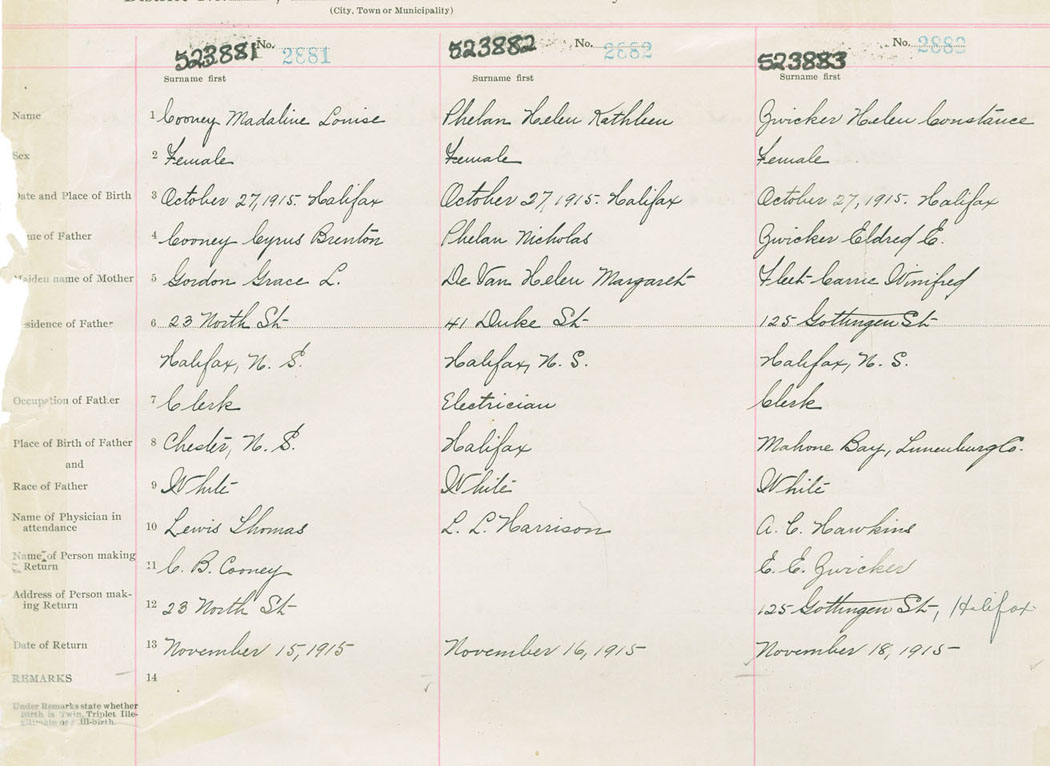 (City, Town or Municipality)
523881 No. 2881 523882 No. 2882 523883 No. 2883
Surname first Surname first Surname first
Name 1 Cooney Madaline Louise Phelan Helen Kathleen Zwicker Helen Constance
Sex 2 Female Female Female
Date and Place of Birth 3 October 27, 1915. Halifax October 27, 1915. Halifax October 27, 1915. Halifax
of Father 4 Cooney Cyrus Brenton Phelan Nicholas Zwicker Eldred E.
Maiden name of Mother 5 Gordon Grace L. De Van Helen Margaret Fleet Carrie Winifred
sidence of Father 6 23 North St 41 Duke St 125 Gottingen St
Halifax, N. S. Halifax, N. S. Halifax, N. S.
Occupation of Father 7 Clerk Electrician Clerk
Place of Birth of Father 8 Chester, N. S. Halifax Mahone Bay, Lunenburg Co.
and
Race of Father 9 White White White
Name of Physician in
attendance 10 Lewis Thomas L. L. Harrison A. C. Hawkins
Name of Person making
Return 11 C. B. Cooney E. E. Zwicker
Address of Person mak-
ing Return 12 23 North St 125 Gottingen St, Halifax
Date of Return 13 November 15, 1915 November 16, 1915 November 18, 1915
REMARKS 14
Under Remarks state whether
Birth is Twin, Triplet Ille-
gitimate or Still-birth.